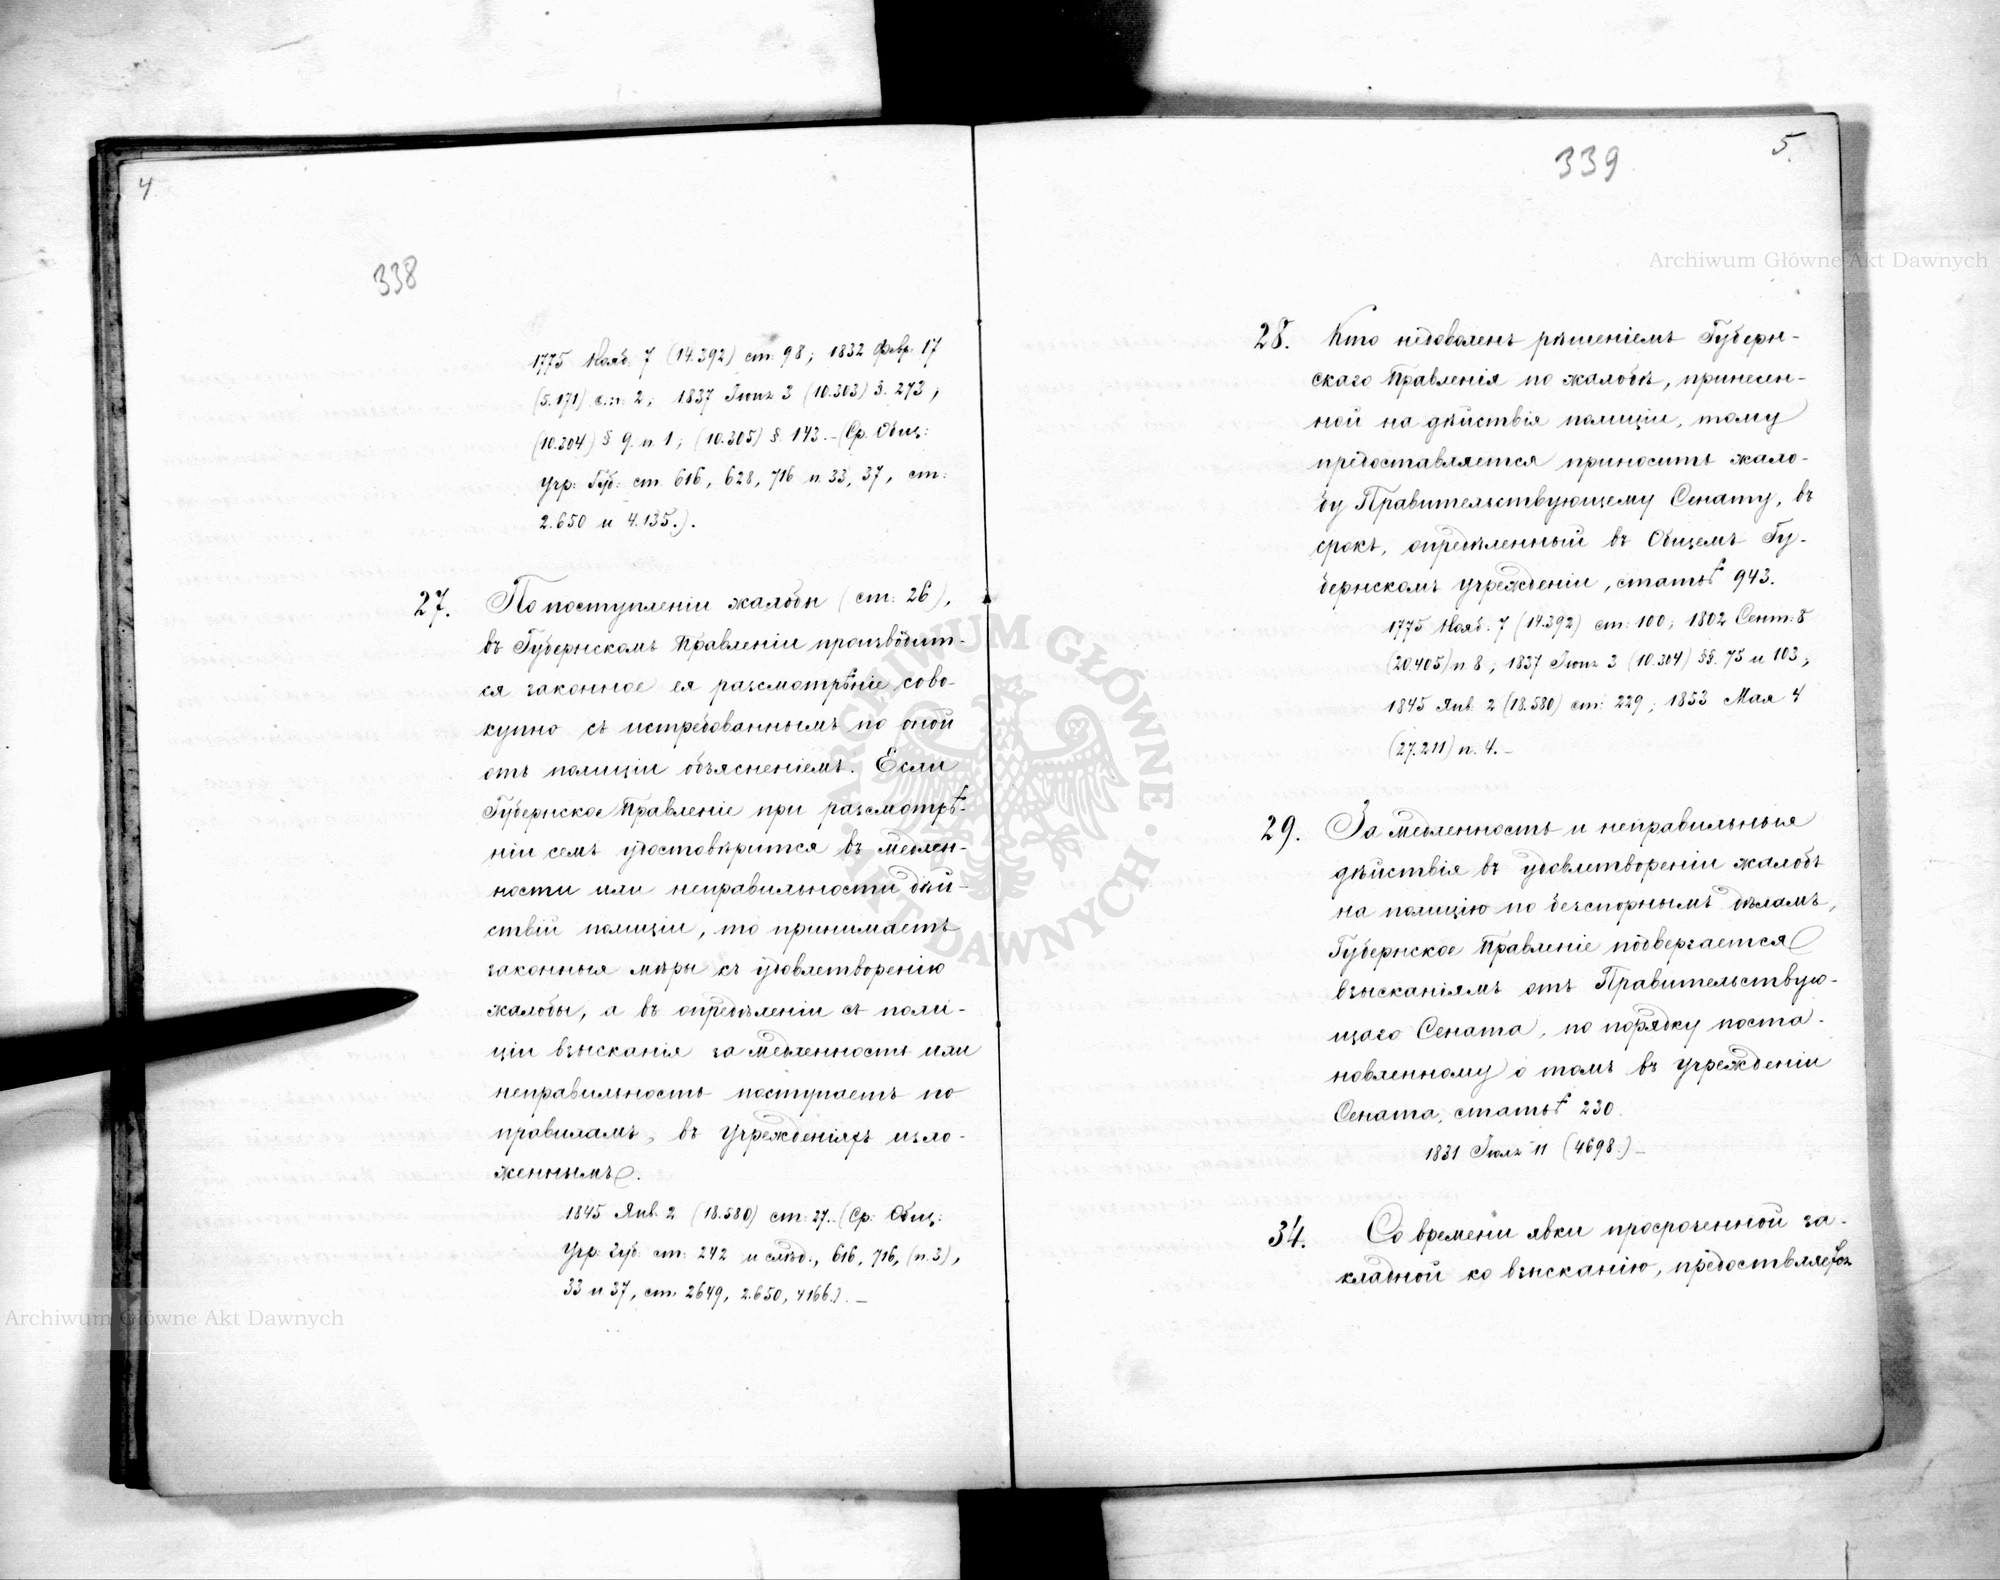 4.
338
1775 Нояб. 7 (14.392) ст. 98; 1832 Февр. 17
(5.171) ст. 2; 1837 Іюня 3 (10.303) §. 273,
(10.304) § 9. п. 1; (10.305) §. 143. – (Ср. Общ:
Учр: Губ: ст. 616, 628, 716 п. 33, 37, ст:
2.650 и 4.135.).
27. По поступленіи жалобы (ст: 26),
въ Губернскомъ Правленіи производит-
ся законное ея разсмотрѣніе, сово-
купно съ истребованнымъ по оной
отъ полиціи объясненіемъ. Если
Губернское Правленіе при разсмотрѣ-
ніи семъ удостовѣрится въ медлен-
ности или неправильности дѣй-
ствій полиціи, то принимаетъ
законныя мѣры къ удовлетворенію
жалобы, а въ опредѣленіи съ поли-
ціи взысканія за медленность или
неправильность поступаетъ по
правиламъ, въ Учрежденіяхъ изло-
женнымъ.
1845 Янв. 2 (18.580) ст: 27. – (Ср: Общ:
Учр: Губ: ст: 242 и слѣд., 616, 716, (п. 3),
33 и 37, ст. 2649, 2.650, 4166.). –
5.
339
28. Кто недоволенъ рѣшеніемъ Губерн-
скаго Правленія по жалобѣ, принесен-
ной на дѣйствія полиціи, тому
предоставляется приносить жало-
бу Правительствующему Сенату, въ
срокъ, опредѣленный въ Общемъ Гу-
бернскомъ учрежденіи, статьѣ 943.
1775 Нояб. 7 (14.392) ст: 100; 1802 Сент. 8
(20.405) п. 8; 1837 Іюня 3 (10.304) §§. 75 и 103;
1845 Янв. 2 (18.580) ст: 229; 1853 Мая 4
(27.211) п. 4. –
29. За медленность и неправильныя
дѣйствія въ удовлетвореніи жалобъ
на полицію по безспорнымъ дѣламъ,
Губернское Правленіе подвергается
взысканіямъ отъ Правительствую-
щаго Сената, по порядку поста-
новленному о томъ въ учрежденіи
Сената, статьѣ 230.
1831 Іюля 11 (4698.) –
34. Со времени явки просроченной за-
кладной ко взысканію, предоставляется
Archiwum Główne Akt Dawnych
Archiwum Główne Akt Dawnych
ARCHIWUM GŁÓWNE
AKT DAWNYCH